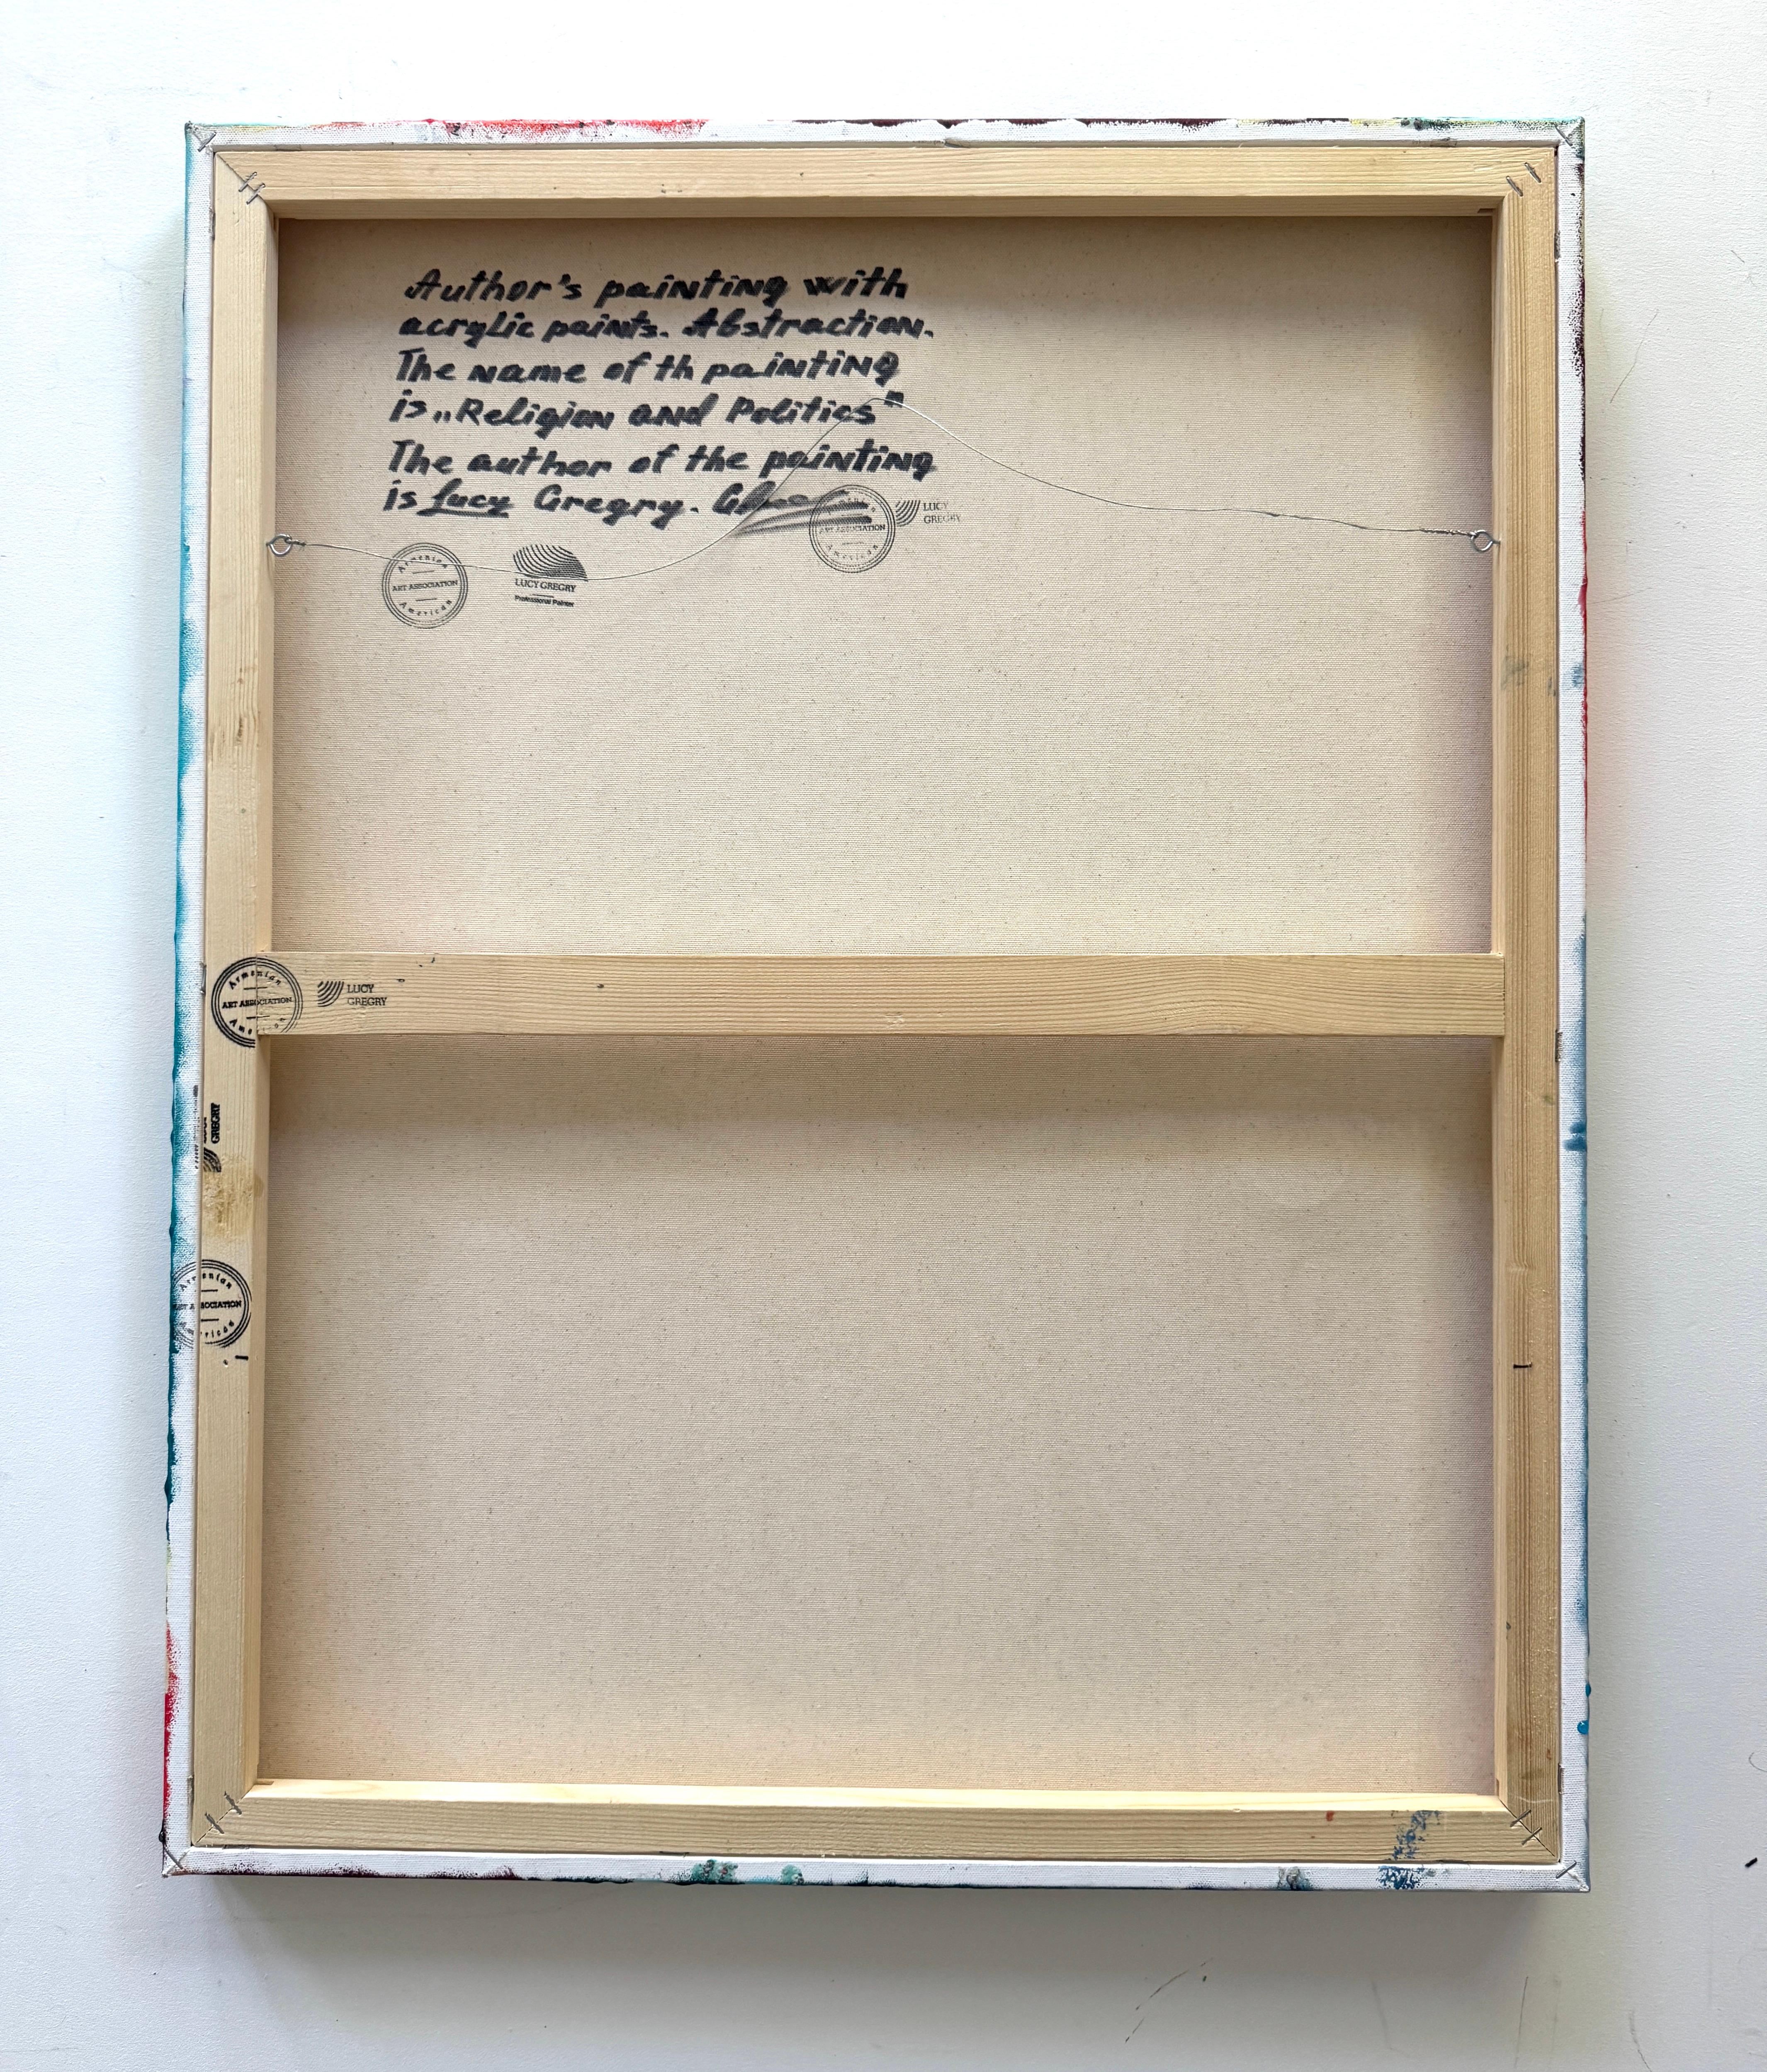 Author's painting with
acrylic paints. Abstraction.
The name of th painting
is „Religion and Politics"
The author of the painting
is Lucy Gregry.
ART ASSOCIATION
American
LUCY
GREGRY
Armenian
ART ASSOCIATION
American
LUCY GREGRY
Professional Painter
Armenian
ART ASSOCIATION
LUCY
GREGRY
GREGRY